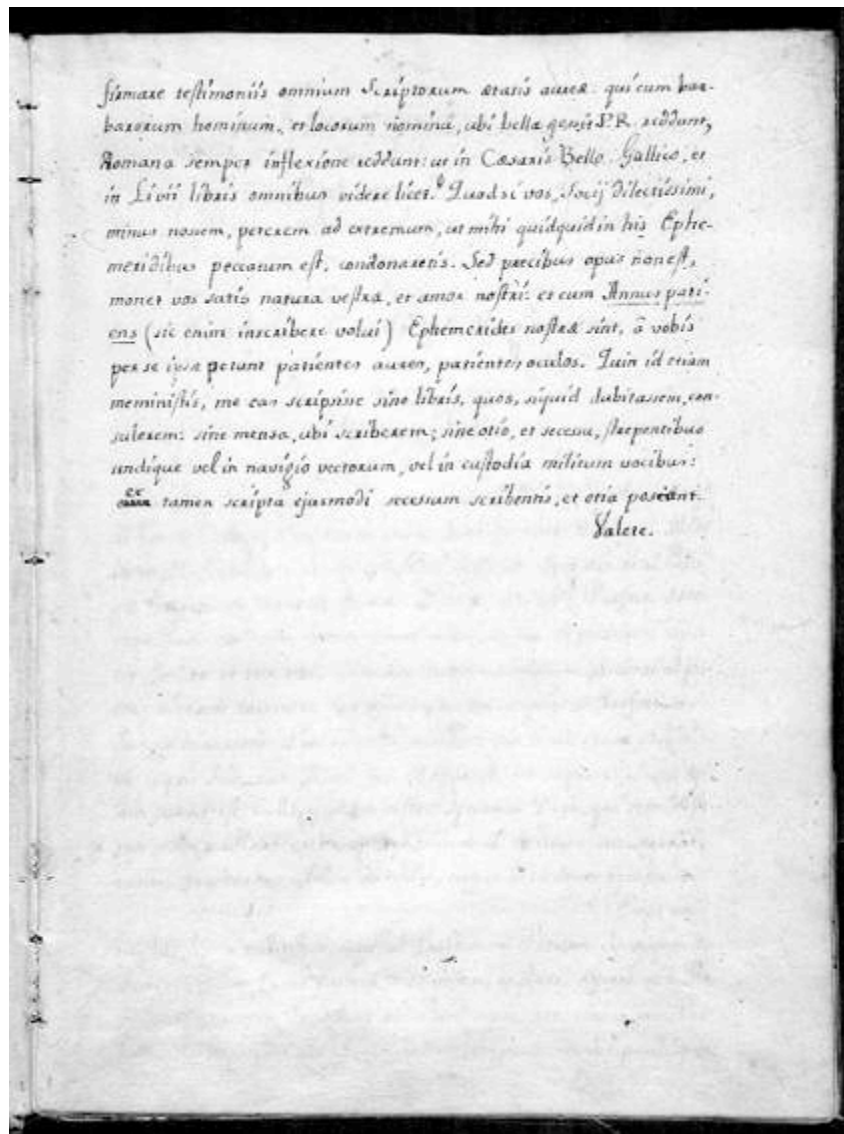 firmare testimoniis omnium Scriptorum ætatis aureæ. qui cum bar-
barorum hominum, et locorum nomina, ubi bella gessit P.R. reddunt,
Romana semper inflexione reddunt: ut in Cæsaris Bello Gallico, et
in Livii libris omnibus videre licet. Quod si vos, Socij dilectissimi,
minus nossem, peterem ad extremum, ut mihi quidquid in his Ephe-
meridibus peccatum est, condonaretis. Sed precibus opus non est,
monet vos satis natura vestra, et amor nostri: et cum Annus pati-
ens (sic enim inscribere volui) Ephemerides nostræ sint, â vobis
per se ipsæ petunt patientes aures, patientes oculos. Quin id etiam
meministis, me eas scripsisse sine libris, quos, siquid dubitassem, con-
sulerem: sine mensa, ubi scriberem; sine otio, et secessu, strepentibus
undique vel in navigio vectorum, vel in custodia militum vocibus:
et tamen scripta ejusmodi secessum scribentis, et otia poscant.
Valete.